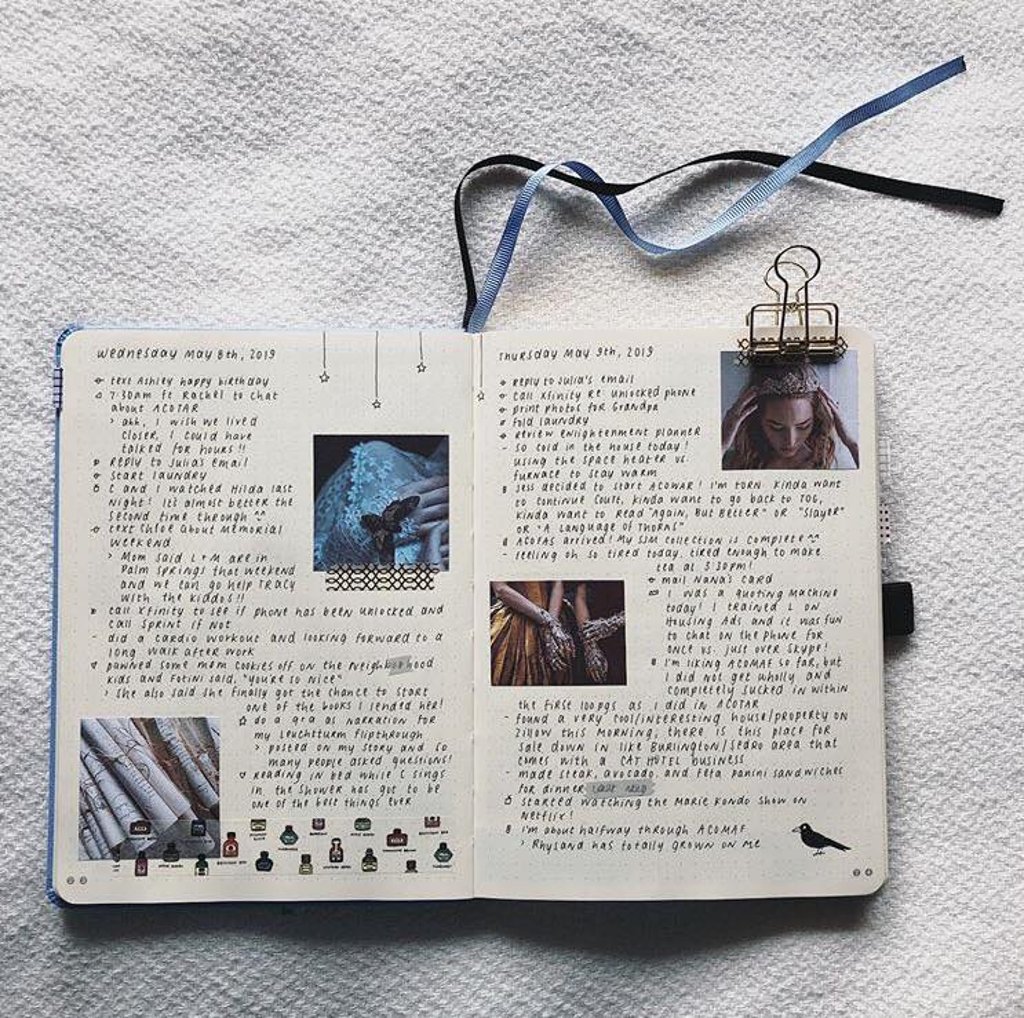 Wednesday May 8th, 2019
text Ashley happy birthday
7:30am ft Rachel to chat
about ACOTAR
> ahh, I wish we lived
closer, I could have
talked for hours!!
reply to Julia's email
start laundry
C and I watched Hilda last
night! It's almost better the
second time through ^^
text Chloe about Memorial
weekend
> Mom said L + M are in
Palm Springs that weekend
and we can go help Tracy
with the kiddos!!
call Xfinity to see if phone has been unlocked and
call Sprint if not
- did a cardio workout and looking forward to a
long walk after work
pawned some mom cookies off on the neighborhood
kids and Fotini said, "you're so nice"
> She also said she finally got the chance to start
one of the books I lended her!
do a q+a as narration for
my Leuchtturm flipthrough
> posted on my story and so
many people asked questions!
reading in bed while C sings
in the shower has got to be
one of the best things ever
Thursday May 9th, 2019
reply to Julia's email
call Xfinity re: unlocked phone
print photos for Grandpa
fold laundry
review enlightenment planner
- so cold in the house today!
using the space heater vs.
furnace to stay warm
Jess decided to start ACOWAR! I'm torn. Kinda want
to continue Coult, kinda want to go back to TOG,
kinda want to read "Again, But Better" or "Slayer"
or "A Language of Thorns"
ACOFAS arrived! My SJM collection is complete ^^
- feeling oh so tired today. tired enough to make
tea at 3:30pm!
mail Nana's card
I was a quoting machine
today! I trained L on
Housing Ads and it was fun
to chat on the phone for
once vs. just over Skype!
I'm liking ACOMAF so far, but
I did not get wholly and
completely sucked in within
the first 100pgs as I did in ACOTAR
- found a very cool/interesting house/property on
Zillow this morning, there is this place for
sale down in like Burlington/Sedro area that
comes with a CAT HOTEL business
- made steak, avocado, and feta panini sandwiches
for dinner
started watching the Marie Kondo show on
Netflix!
I'm about halfway through ACOMAF
> Rhysand has totally grown on me